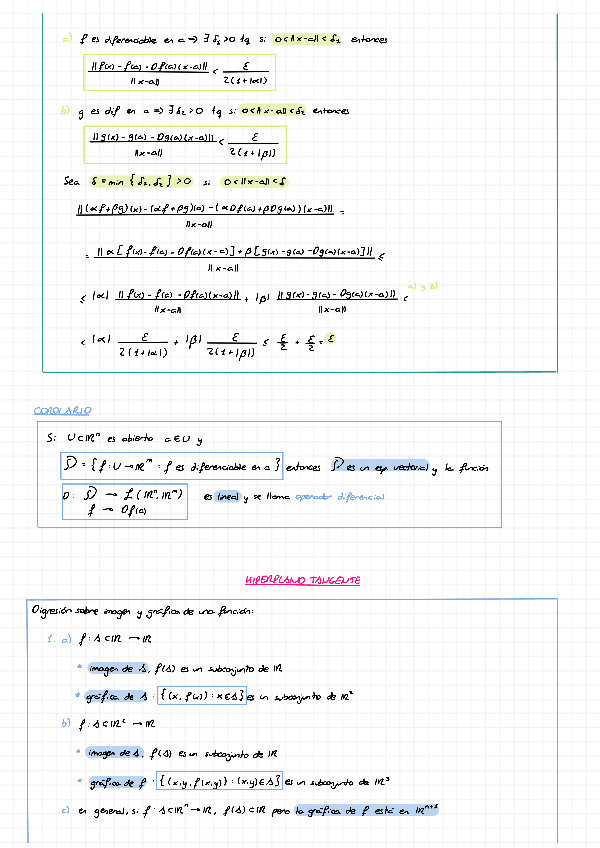 a) f es diferenciable en a => ∃ δ₁>0 tq si 0<||x-a||<δ₁ entonces
||f(x) - f(a) - Df(a)(x-a)|| / ||x-a|| < ε / 2(1+|α|)
b) g es dif en a => ∃ δ₂>0 tq si 0<||x-a||<δ₂ entonces
||g(x) - g(a) - Dg(a)(x-a)|| / ||x-a|| < ε / 2(1+|β|)
Sea δ = min {δ₁, δ₂} > 0 si 0<||x-a||<δ
||(αf+βg)(x) - (αf+βg)(a) - (αDf(a)+βDg(a))(x-a)|| / ||x-a|| =
= ||α[f(x) - f(a) - Df(a)(x-a)] + β[g(x) - g(a) - Dg(a)(x-a)]|| / ||x-a|| ≤
≤ |α| ||f(x) - f(a) - Df(a)(x-a)|| / ||x-a|| + |β| ||g(x) - g(a) - Dg(a)(x-a)|| / ||x-a|| < a) y b)
< |α| ε / 2(1+|α|) + |β| ε / 2(1+|β|) ≤ ε/2 + ε/2 = ε
COROLARIO
Si U⊂ℝⁿ es abierto a∈U y
D = {f: U→ℝᵐ : f es diferenciable en a} entonces D es un esp. vectorial y la función
D: D → L(ℝⁿ, ℝᵐ) es lineal y se llama operador diferencial
f → Df(a)
HIPERPLANO TANGENTE
Digresión sobre imagen y gráfica de una función:
1. a) f: A⊂ℝ → ℝ
* imagen de A, f(A) es un subconjunto de ℝ
* gráfica de A : {(x, f(x)) : x∈A} es un subconjunto de ℝ²
b) f: A⊂ℝ² → ℝ
* imagen de A, f(A) es un subconjunto de ℝ
* gráfica de f : {(x,y, f(x,y)) : (x,y)∈A} es un subconjunto de ℝ³
c) en general, si f: A⊂ℝⁿ → ℝ, f(A)⊂ℝ pero la gráfica de f está en ℝⁿ⁺¹